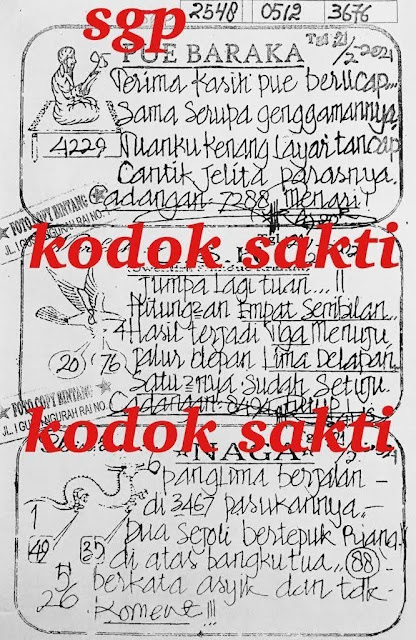 2548 0512 3676
sgp
PUE BARAKA
Tgl 21/2-2021
Terima Kasih pue berucap...
Sama Serupa genggamannya.
4229 Tuanku Kenang Layar tancap
Cantik Jelita parasnya.
Cadangan. 7288 menari!
FOTO COPY BINTANG
JL. I GUSTI NGURAH RAI NO.
kodok sakti
Jumpa Lagi tuan...!!
Hitungan Empat Sembilan..
4 Hasil terjadi Tiga Menuju
20 76 Jalur depan Lima Delapan
Satu2nya Sudah Setuju.
Cadangan. 8494
FOTO COPY BINTANG
JL. I GUSTI NGURAH RAI NO.
kodok sakti
NAGA
6 Panglima berjalan -
di 3467 pasukannya.-
1 Dua Sejoli bertepuk Riang!
49 35 di atas bangku tua.. 88 -
5 berkata asyik dan tdk -
26 Komene !!!